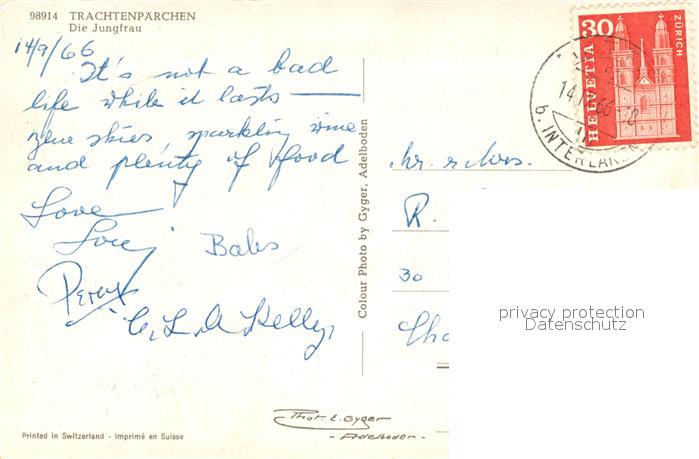 98914 TRACHTENPÄRCHEN
Die Jungfrau
14/9/66
It's not a bad
life while it lasts —
skies sparkling wine
and plenty of food
Love
Babs
Percy
Kelly
Colour Photo by Gyger, Adelboden
Mr. & Mrs.
R.
30
30
HELVETIA
ZÜRICH
b. INTERLAKEN
privacy protection
Datenschutz
Phot. E. Gyger
- Adelboden -
Printed in Switzerland - Imprimé en Suisse